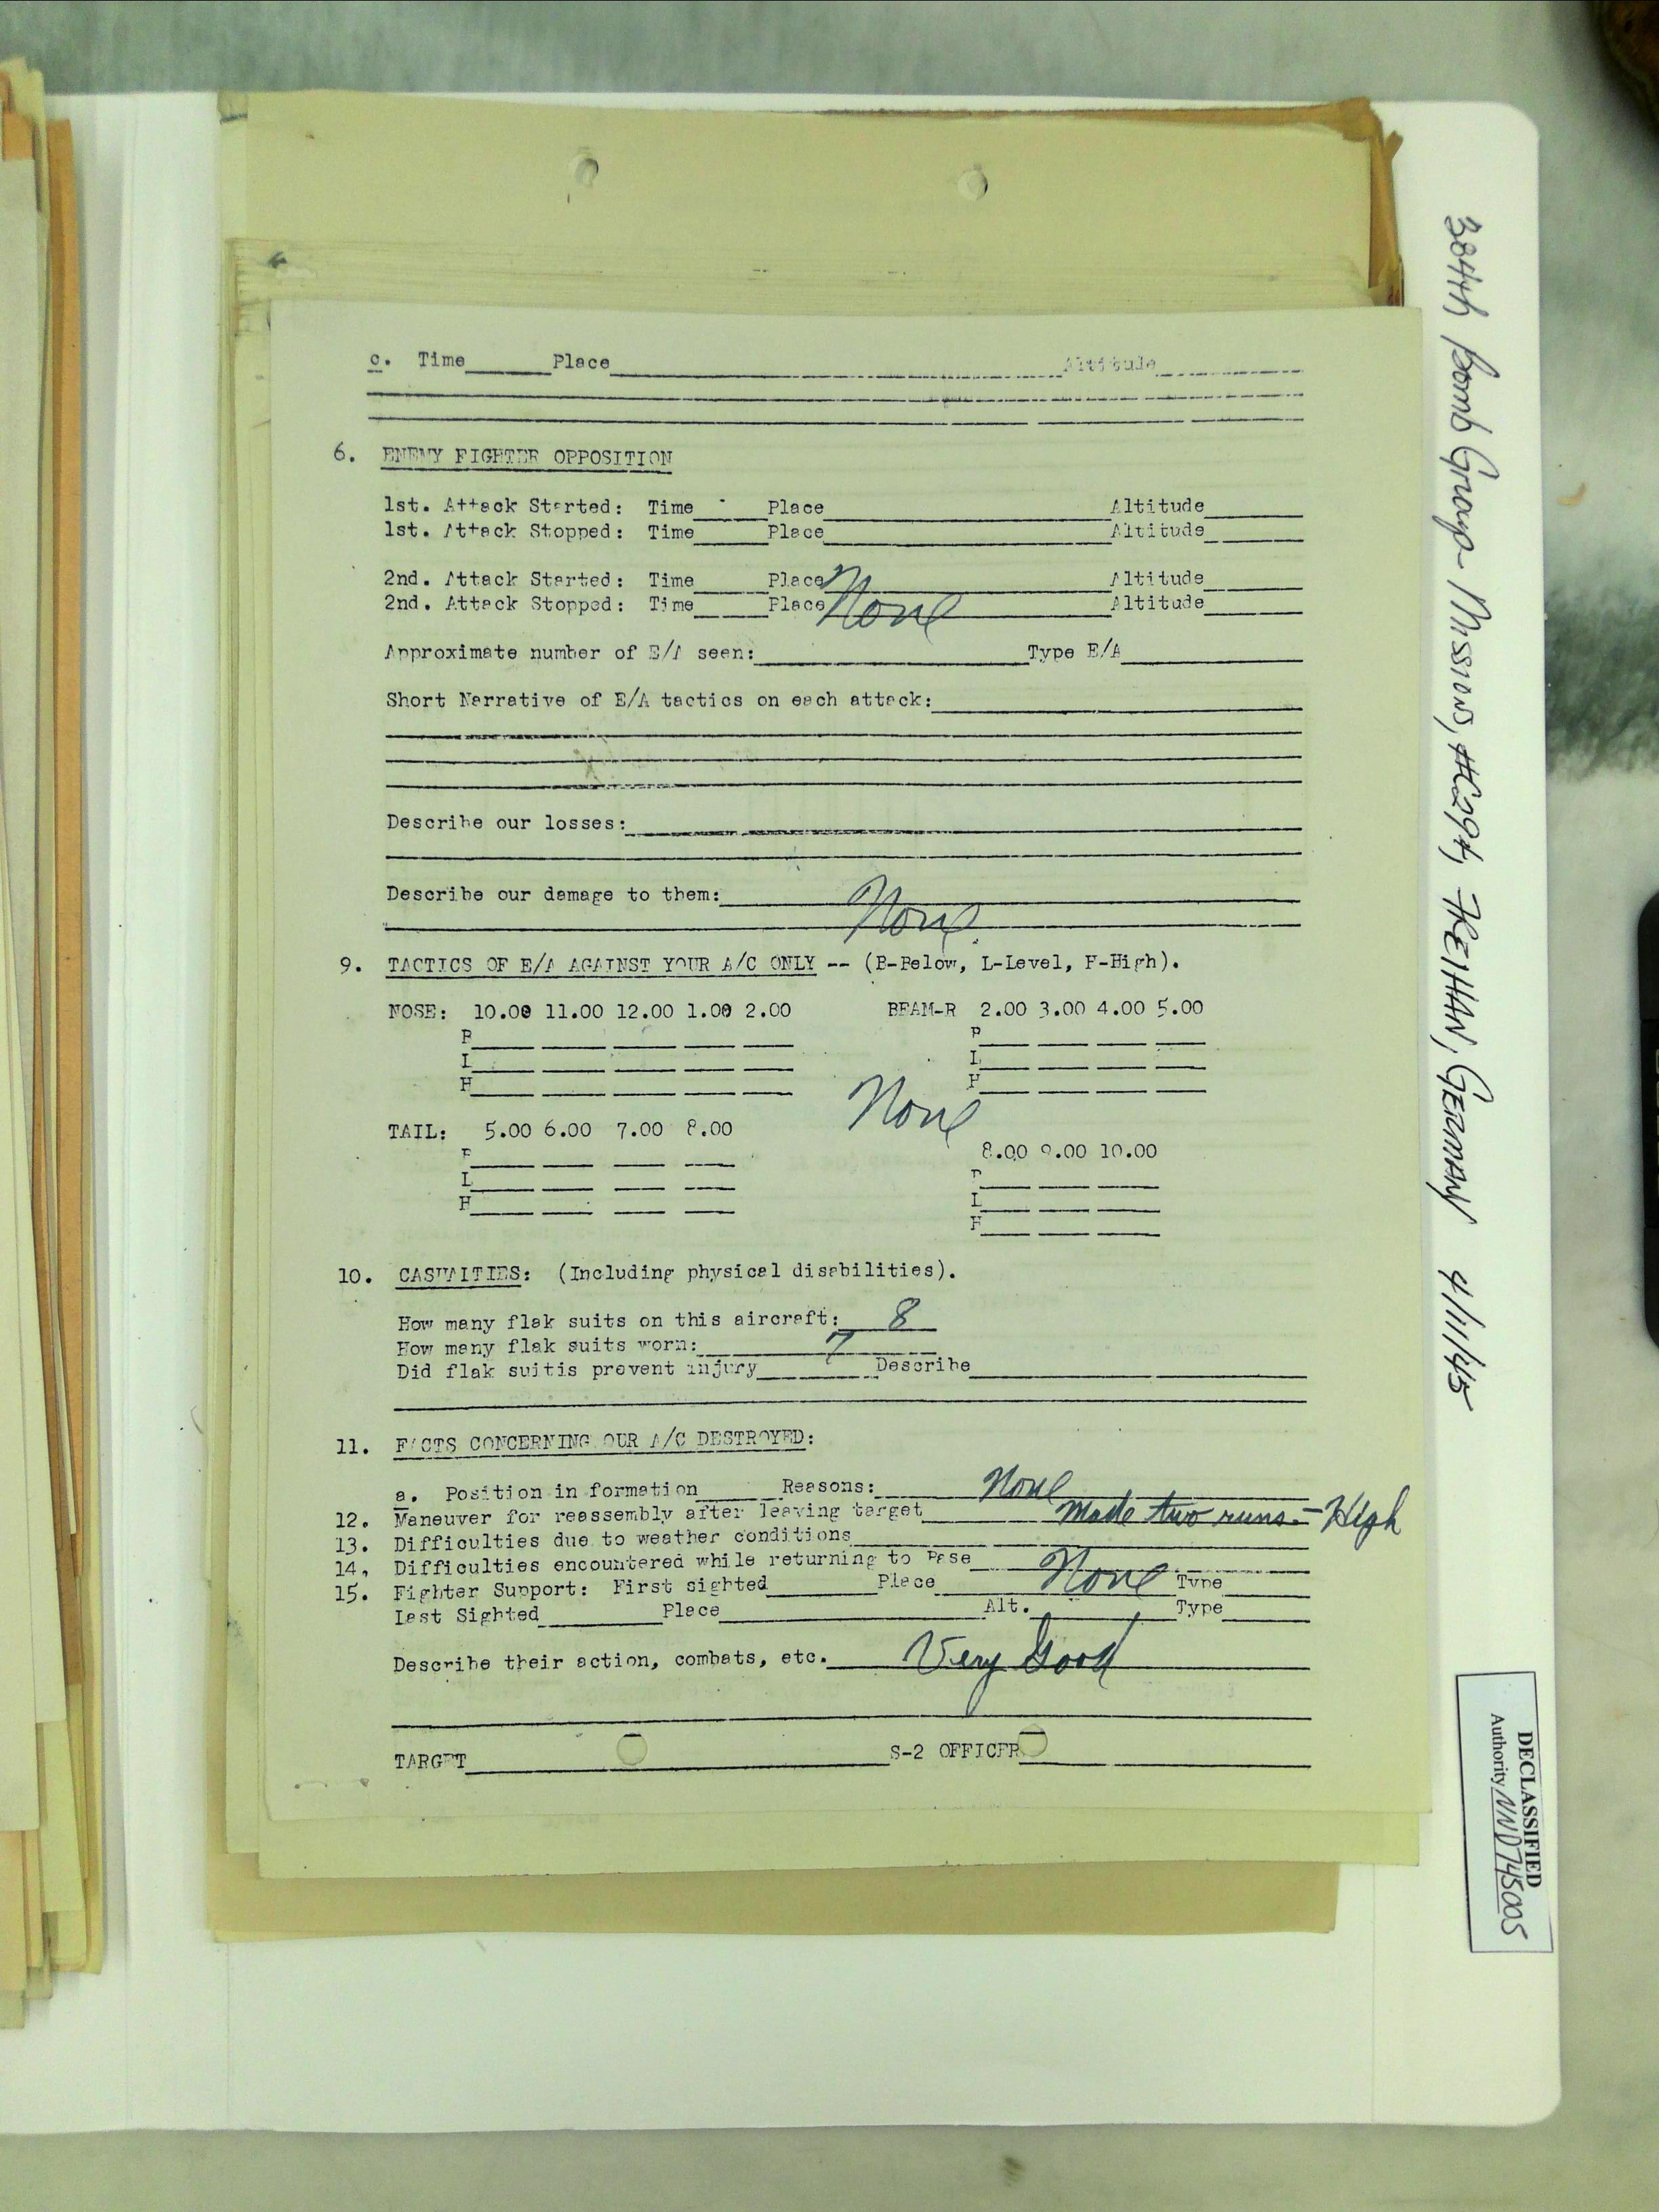 c. Time______Place______Altitude______
6. ENEMY FIGHTER OPPOSITION
1st. Attack Started: Time______Place______Altitude______
1st. Attack Stopped: Time______Place______Altitude______
2nd. Attack Started: Time______Place______Altitude______
2nd. Attack Stopped: Time______Place None Altitude______
Approximate number of E/A seen:______Type E/A______
Short Narrative of E/A tactics on each attack:______
Describe our losses:______
Describe our damage to them: None
9. TACTICS OF E/A AGAINST YOUR A/C ONLY -- (B-Below, L-Level, H-High).
NOSE: 10.00 11.00 12.00 1.00 2.00 BEAM-R 2.00 3.00 4.00 5.00
B B
L L
H H
None
TAIL: 5.00 6.00 7.00 8.00
8.00 9.00 10.00
B B
L L
H H
10. CASUALTIES: (Including physical disabilities).
How many flak suits on this aircraft: 8
How many flak suits worn: 7
Did flak suitis prevent injury______Describe______
11. FACTS CONCERNING OUR A/C DESTROYED:
a. Position in formation______Reasons: None
12. Maneuver for reassembly after leaving target Made two runs - High
13. Difficulties due to weather conditions______
14. Difficulties encountered while returning to Base None
15. Fighter Support: First sighted______Place______Type______
Last Sighted______Place______Alt.______Type______
Describe their action, combats, etc. Very Good
TARGET______S-2 OFFICER______
384th Bomb Group - Missions, #294, FREIHAM, GERMANY 4/11/45
DECLASSIFIED
Authority NND745005